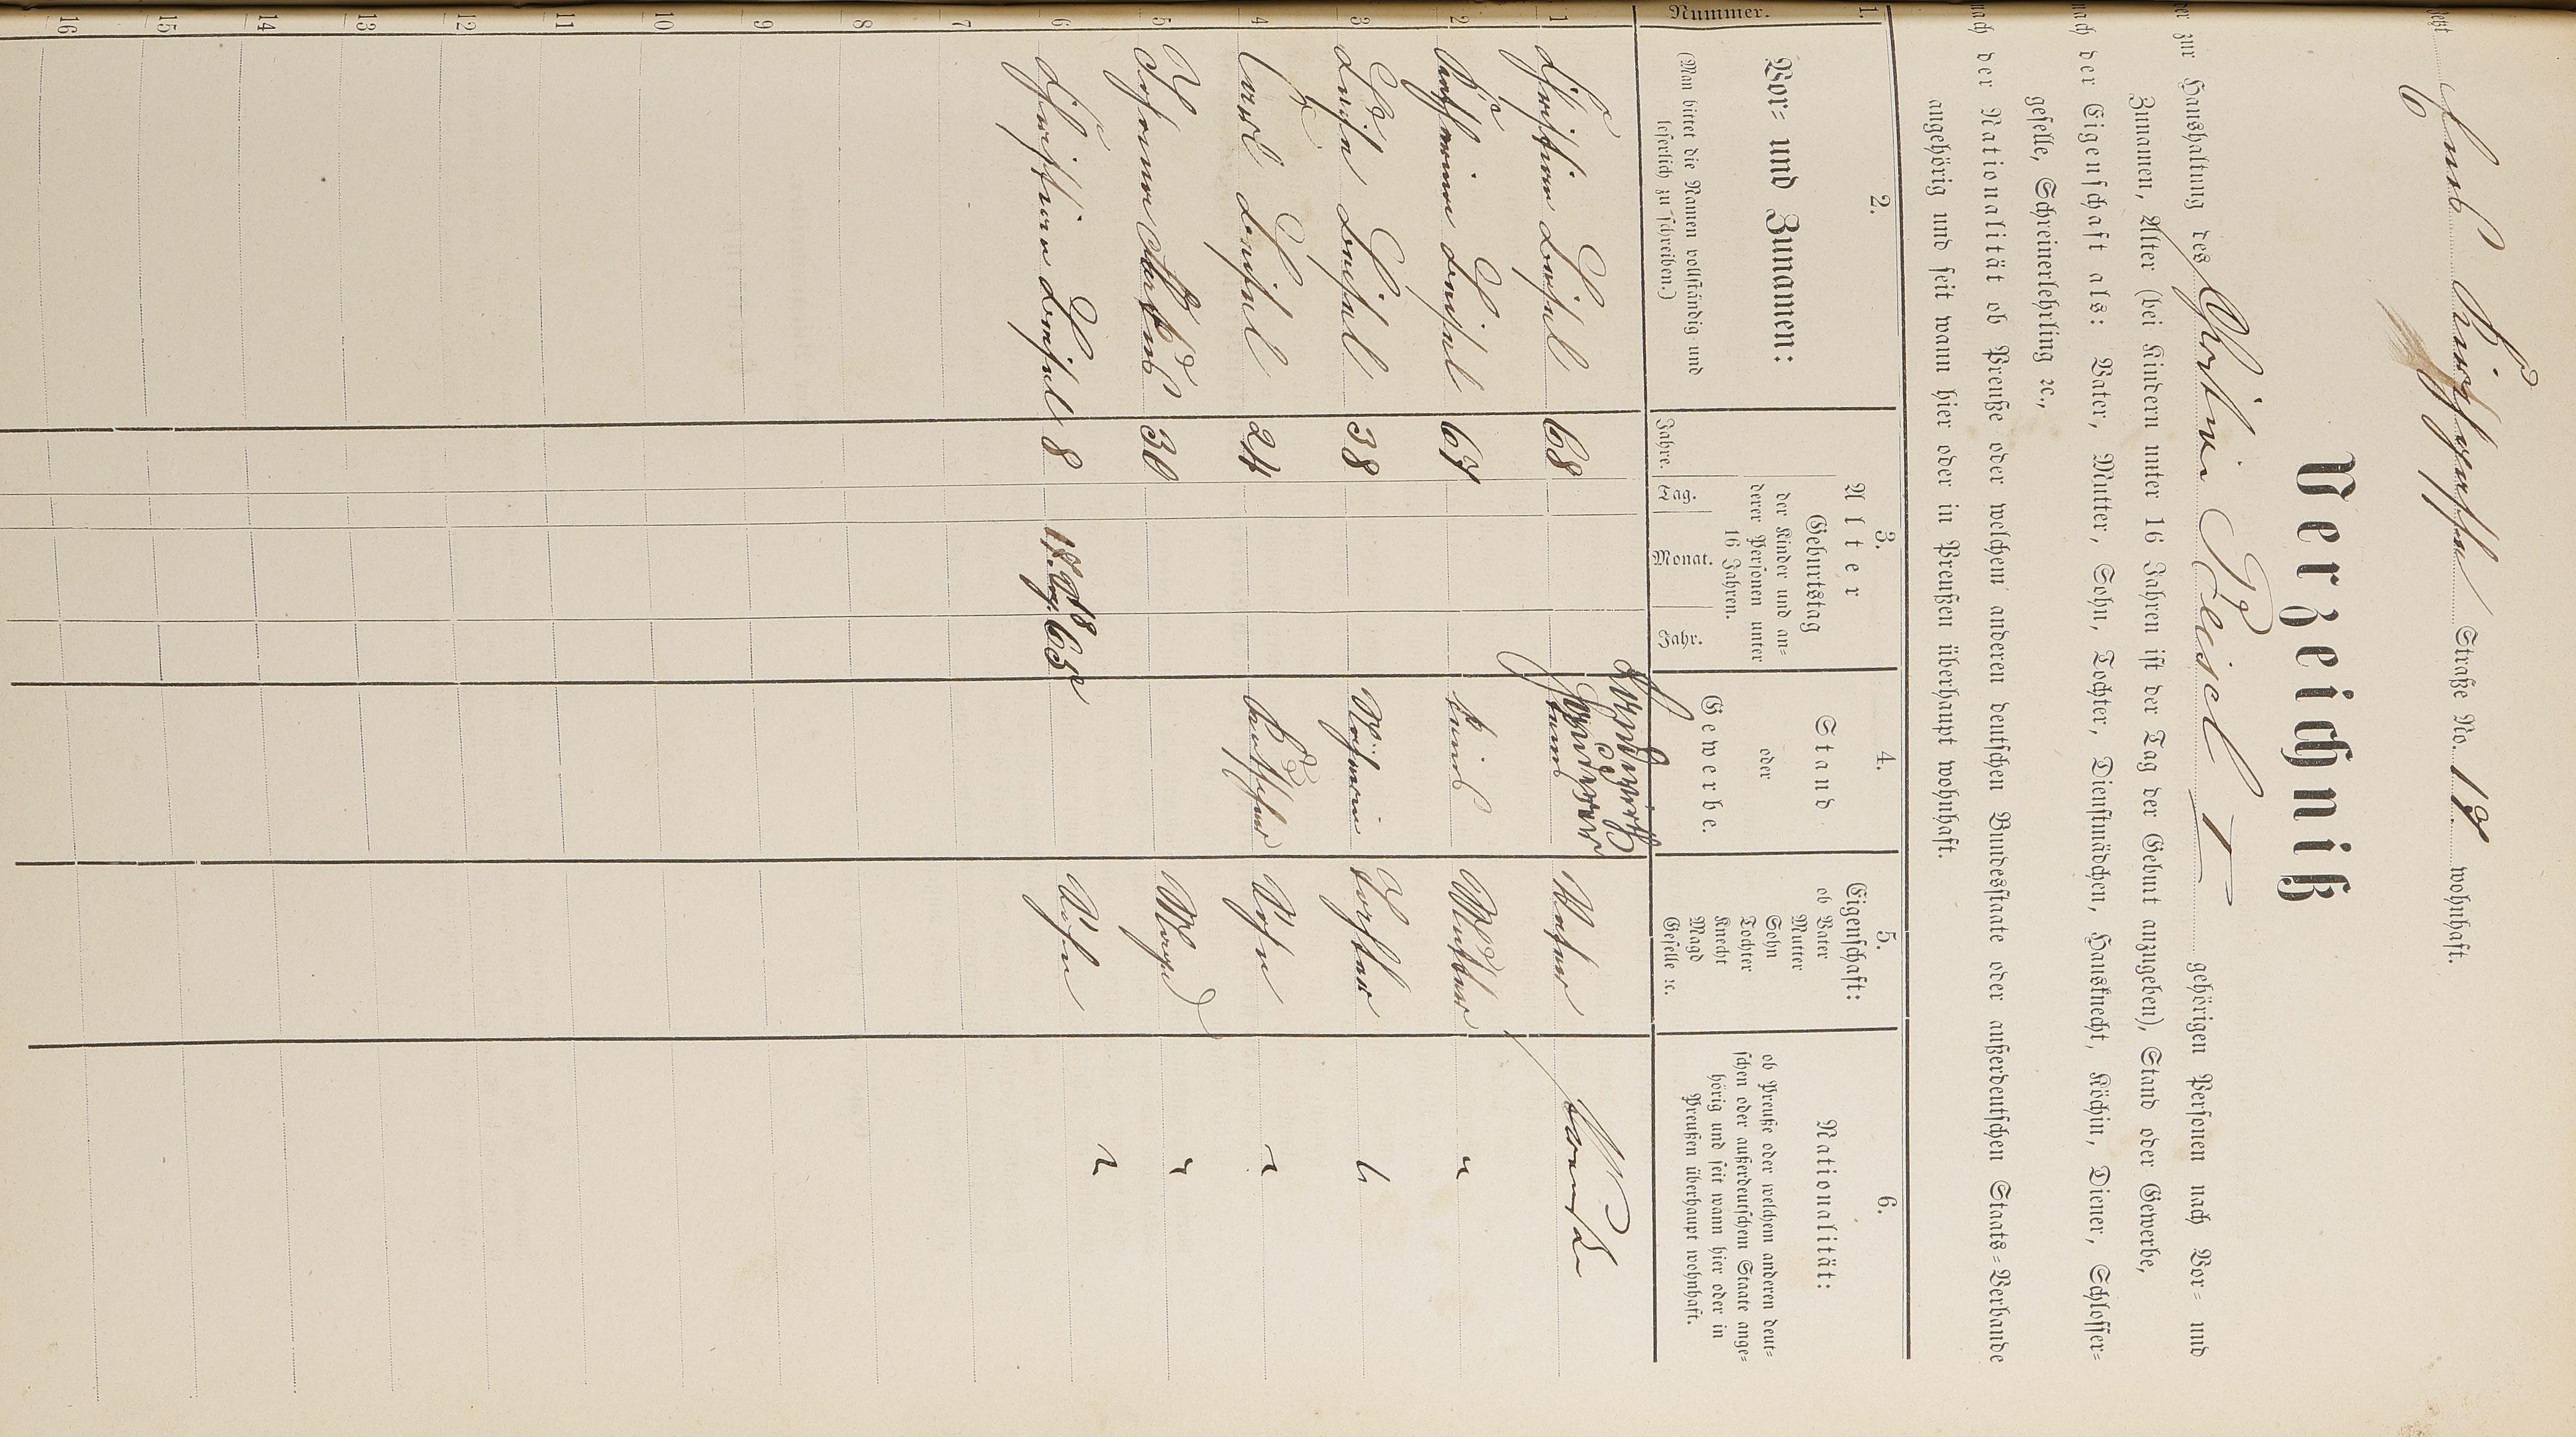 Verzeichniß
der zur Haushaltung des Christian Reisel I gehörigen Personen nach Vor- und
Zunamen, Alter (bei Kindern unter 16 Jahren ist der Tag der Geburt anzugeben), Stand oder Gewerbe,
nach der Eigenschaft als: Vater, Mutter, Sohn, Tochter, Dienstmädchen, Hausknecht, Köchin, Diener, Schlosser-
geselle, Schreinerlehrling ꝛc.,
nach der Nationalität ob Preuße oder welchem anderen deutschen Bundesstaate oder außerdeutschen Staats-Verbande
angehörig und seit wann hier oder in Preußen überhaupt wohnhaft.
jetzt Kirchgasse Straße No. 12. wohnhaft.
1. 2. 3. 4. 5. 6.
Nummer.
Vor- und Zunamen:
(Man bittet die Namen vollständig und
leserlich zu schreiben.)
Alter
Geburtstag
der Kinder und an-
derer Personen unter
16 Jahren.
Jahre. Tag. Monat. Jahr.
Stand
oder
Gewerbe.
Eigenschaft:
ob Vater
Mutter
Sohn
Tochter
Knecht
Magd
Geselle ꝛc.
Nationalität:
ob Preuße oder welchem anderen deut-
schen oder außerdeutschem Staate ange-
hörig und seit wann hier oder in
Preußen überhaupt wohnhaft.
1 Christian 68 Vater Preuße
2 67 keins Mutter "
3 Luise 38 Näherin Tochter "
4 Carl 24 Sohn "
5 30 Magd "
6 Christian 8 65 Sohn "
7
8
9
10
11
12
13
14
15
16